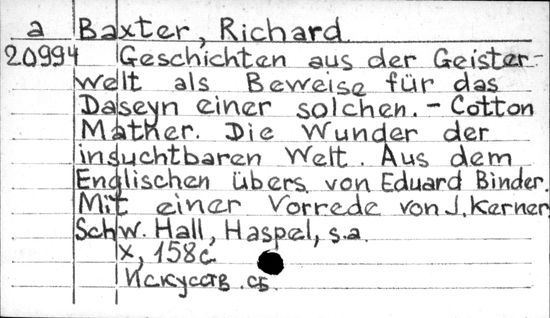 a Baxter, Richard
20994 Geschichten aus der Geister-
welt als Beweise für das
Daseyn einer solchen. - Cotton
Mather. Die Wunder der
insuchtbaren Welt. Aus dem
Englischen übers. von Eduard Binder.
Mit einer Vorrede von J. Kerner
Schw. Hall, Haspel, s.a.
X, 158 с
Искусств. сб.